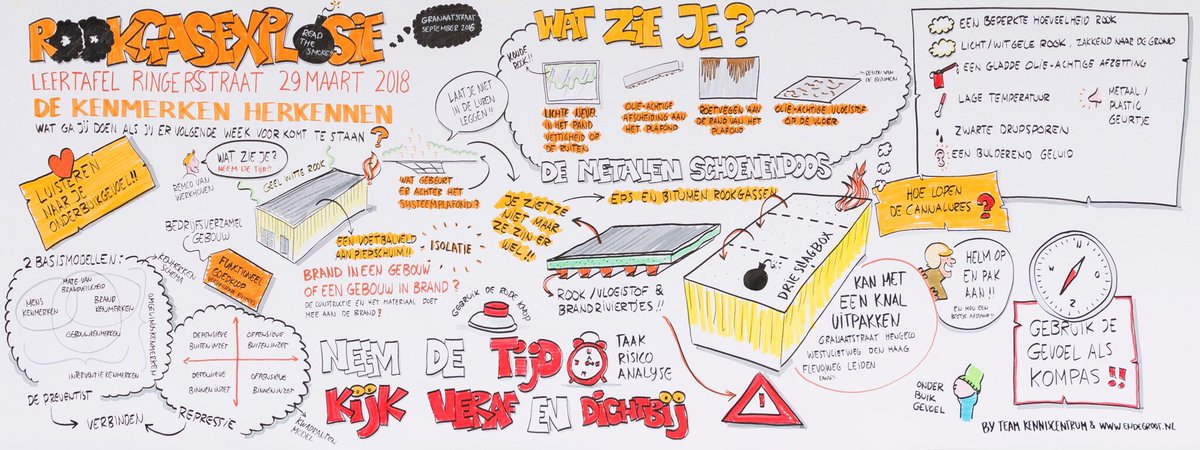 ROOKGASEXPLOSIE
READ
THE
SMOKE!
GRANAATSTRAAT
SEPTEMBER 2016
LEERTAFEL RINGERSSTRAAT 29 MAART 2018
DE KENMERKEN HERKENNEN
WAT GA JIJ DOEN ALS JIJ ER VOLGENDE WEEK VOOR KOMT TE STAAN ?
LUISTEREN
NAAR JE
ONDERBUIKGEVOEL!!
REMCO VAN
WERKHOVEN
WAT ZIE JE?
NEEM DE TIJD!
GEEL WITTE ROOK
BEDRIJFSVERZAMEL
GEBOUW
FUNCTIONEEL
GOEDKOOP
EEN VOETBALVELD
AAN PIEPSCHUIM!!
ISOLATIE
BRAND IN EEN GEBOUW
OF EEN GEBOUW IN BRAND?
DE CONSTRUCTIE EN HET MATERIAAL DOET
MEE AAN DE BRAND!
LAAT JE NIET
IN DE LUREN
LEGGEN!!
WAT GEBEURT
ER ACHTER HET
SYSTEEMPLAFOND?
2 BASISMODELLEN:
KENMERKEN
SCHEMA
MATE VAN
BRANDVEILIGHEID
MENS
KENMERKEN
BRAND
KENMERKEN
GEBOUWKENMERKEN
INTERVENTIE KENMERKEN
OMGEVINGSKENMERKEN
DE PREVENTIST
VERBINDEN
REPRESSIE
DEFENSIEVE
BUITEN INZET
OFFENSIEVE
BUITEN INZET
DEFENSIEVE
BINNEN INZET
OFFENSIEVE
BINNEN INZET
KWADRANTEN
MODEL
GEBRUIK DE RODE KNOP
NEEM DE TIJD
TAAK
RISICO
ANALYSE
KIJK VERAF EN DICHTBIJ
WAT ZIE JE?
KOUDE
ROOK!!
LICHTE NEVEL
IN HET PAND
VETTIGHEID OP
DE RUITEN
OLIE-ACHTIGE
AFSCHEIDING AAN
HET PLAFOND
ROETVEGEN AAN
DE RAND VAN HET
PLAFOND
OLIE-ACHTIGE VLOEISTOF
OP DE VLOER
RESTEN VAN
DE BITUMEN
DE METALEN SCHOENENDOOS
JE ZIET ZE
NIET MAAR
ZE ZIJN ER
WEL!!
EPS EN BITUMEN ROOKGASSEN
ROOK / VLOEISTOF &
BRANDRIVIERTJES!!
DRIESLAGBOX
KAN MET
EEN KNAL
UITPAKKEN
GRANAATSTRAAT HENGELO
WESTVLIETWEG DEN HAAG
FLEVOWEG LEIDEN
EEN BEPERKTE HOEVEELHEID ROOK
LICHT/WITGELE ROOK, ZAKKEND NAAR DE GROND
EEN GLADDE OLIE-ACHTIGE AFZETTING
LAGE TEMPERATUUR
METAAL /
PLASTIC
GEURTJE
ZWARTE DRUPSPOREN
EEN BULDEREND GELUID
HOE LOPEN
DE CANNALURES ?
HELM OP
EN PAK
AAN!!
EN HOU EEN
BEETJE AFSTAND!!
N
O
Z
W
GEBRUIK JE
GEVOEL ALS
KOMPAS !!
ONDER
BUIK
GEVOEL
BY TEAM KENNISCENTRUM & WWW.ENDEGROOT.NL